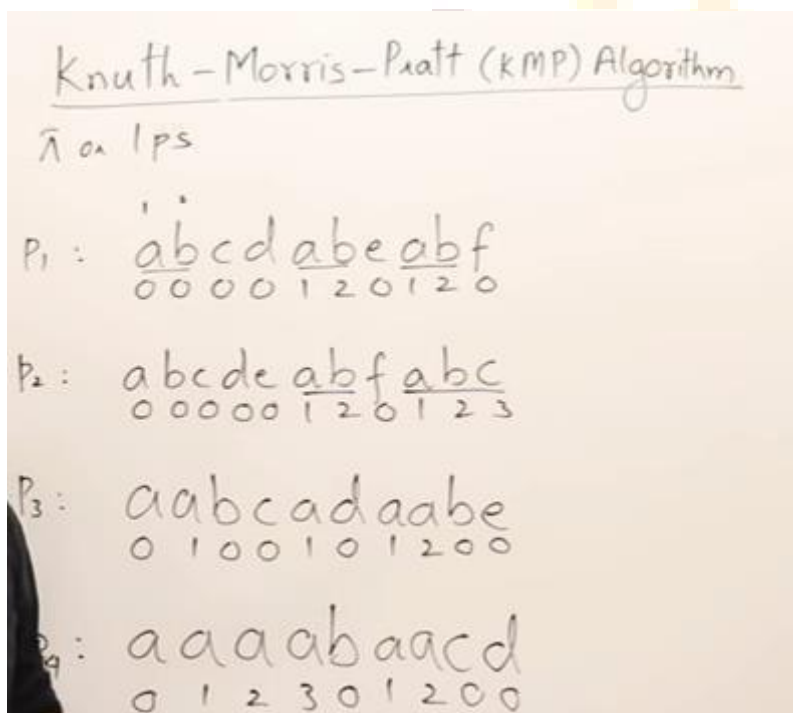 Knuth-Morris-Pratt (KMP) Algorithm
π or lps
P₁ : abcdabeabf
0 0 0 0 1 2 0 1 2 0
P₂ : abcdeabfabc
0 0 0 0 0 1 2 0 1 2 3
P₃ : aabcadaabe
0 1 0 0 1 0 1 2 0 0
P₄ : aaaabaacd
0 1 2 3 0 1 2 0 0